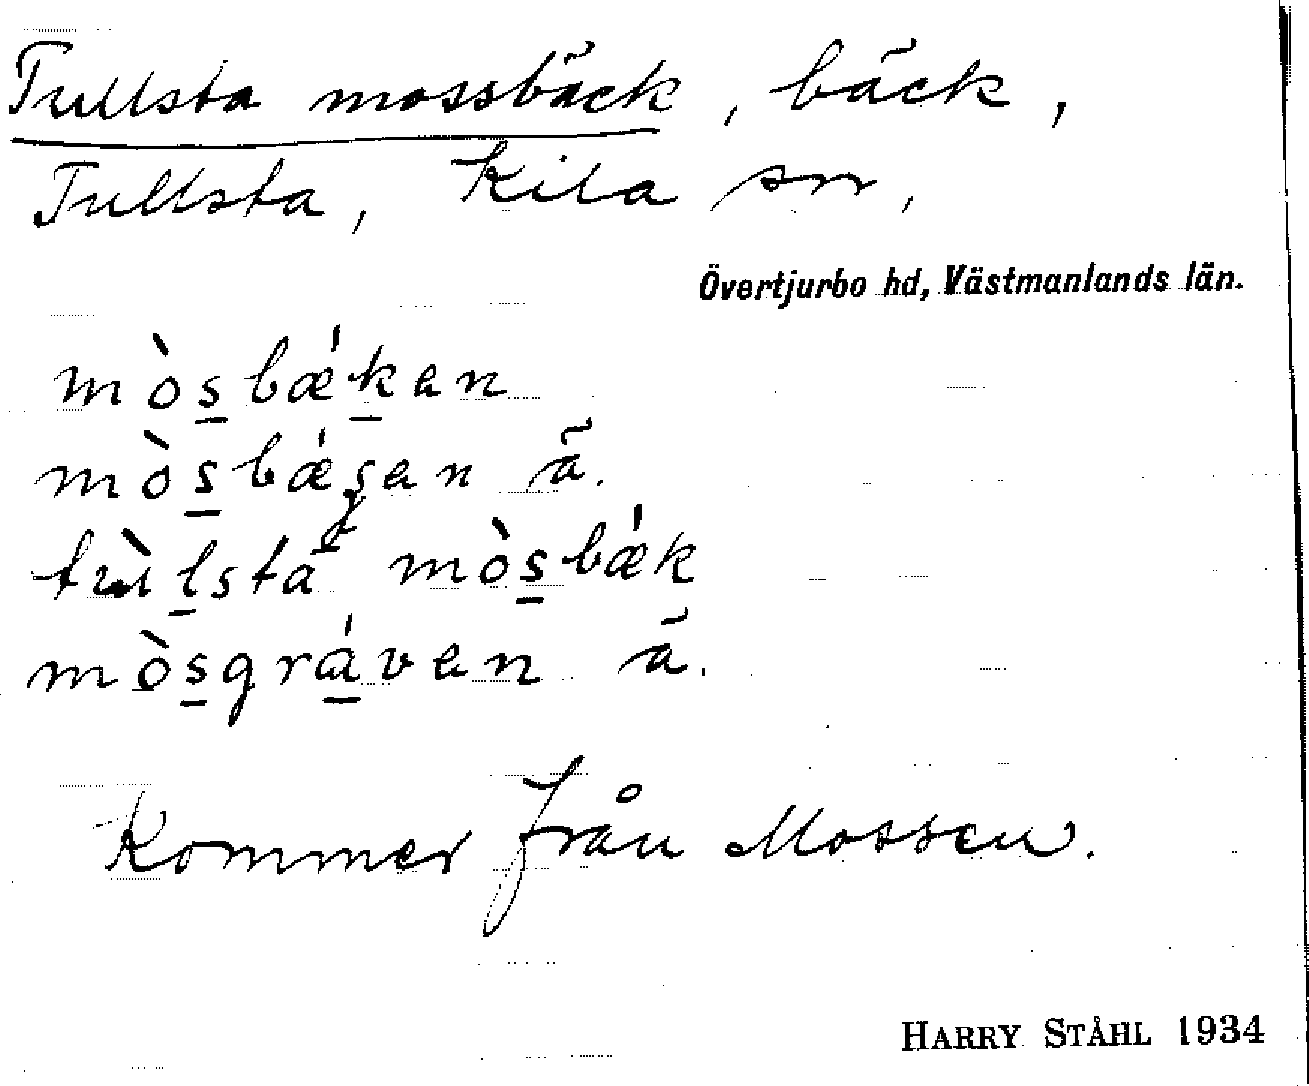 Tullsta mossbäck, bäck,
Tullsta, Kila sn,
Övertjurbo hd, Västmanlands län.
mòs̲bǽk̲en
mòs̲bǽȿen ä.
tùl̲stá mòs̲bǽk
mòs̲grá̲ven ä.
Kommer från Mossen.
HARRY STÅHL 1934